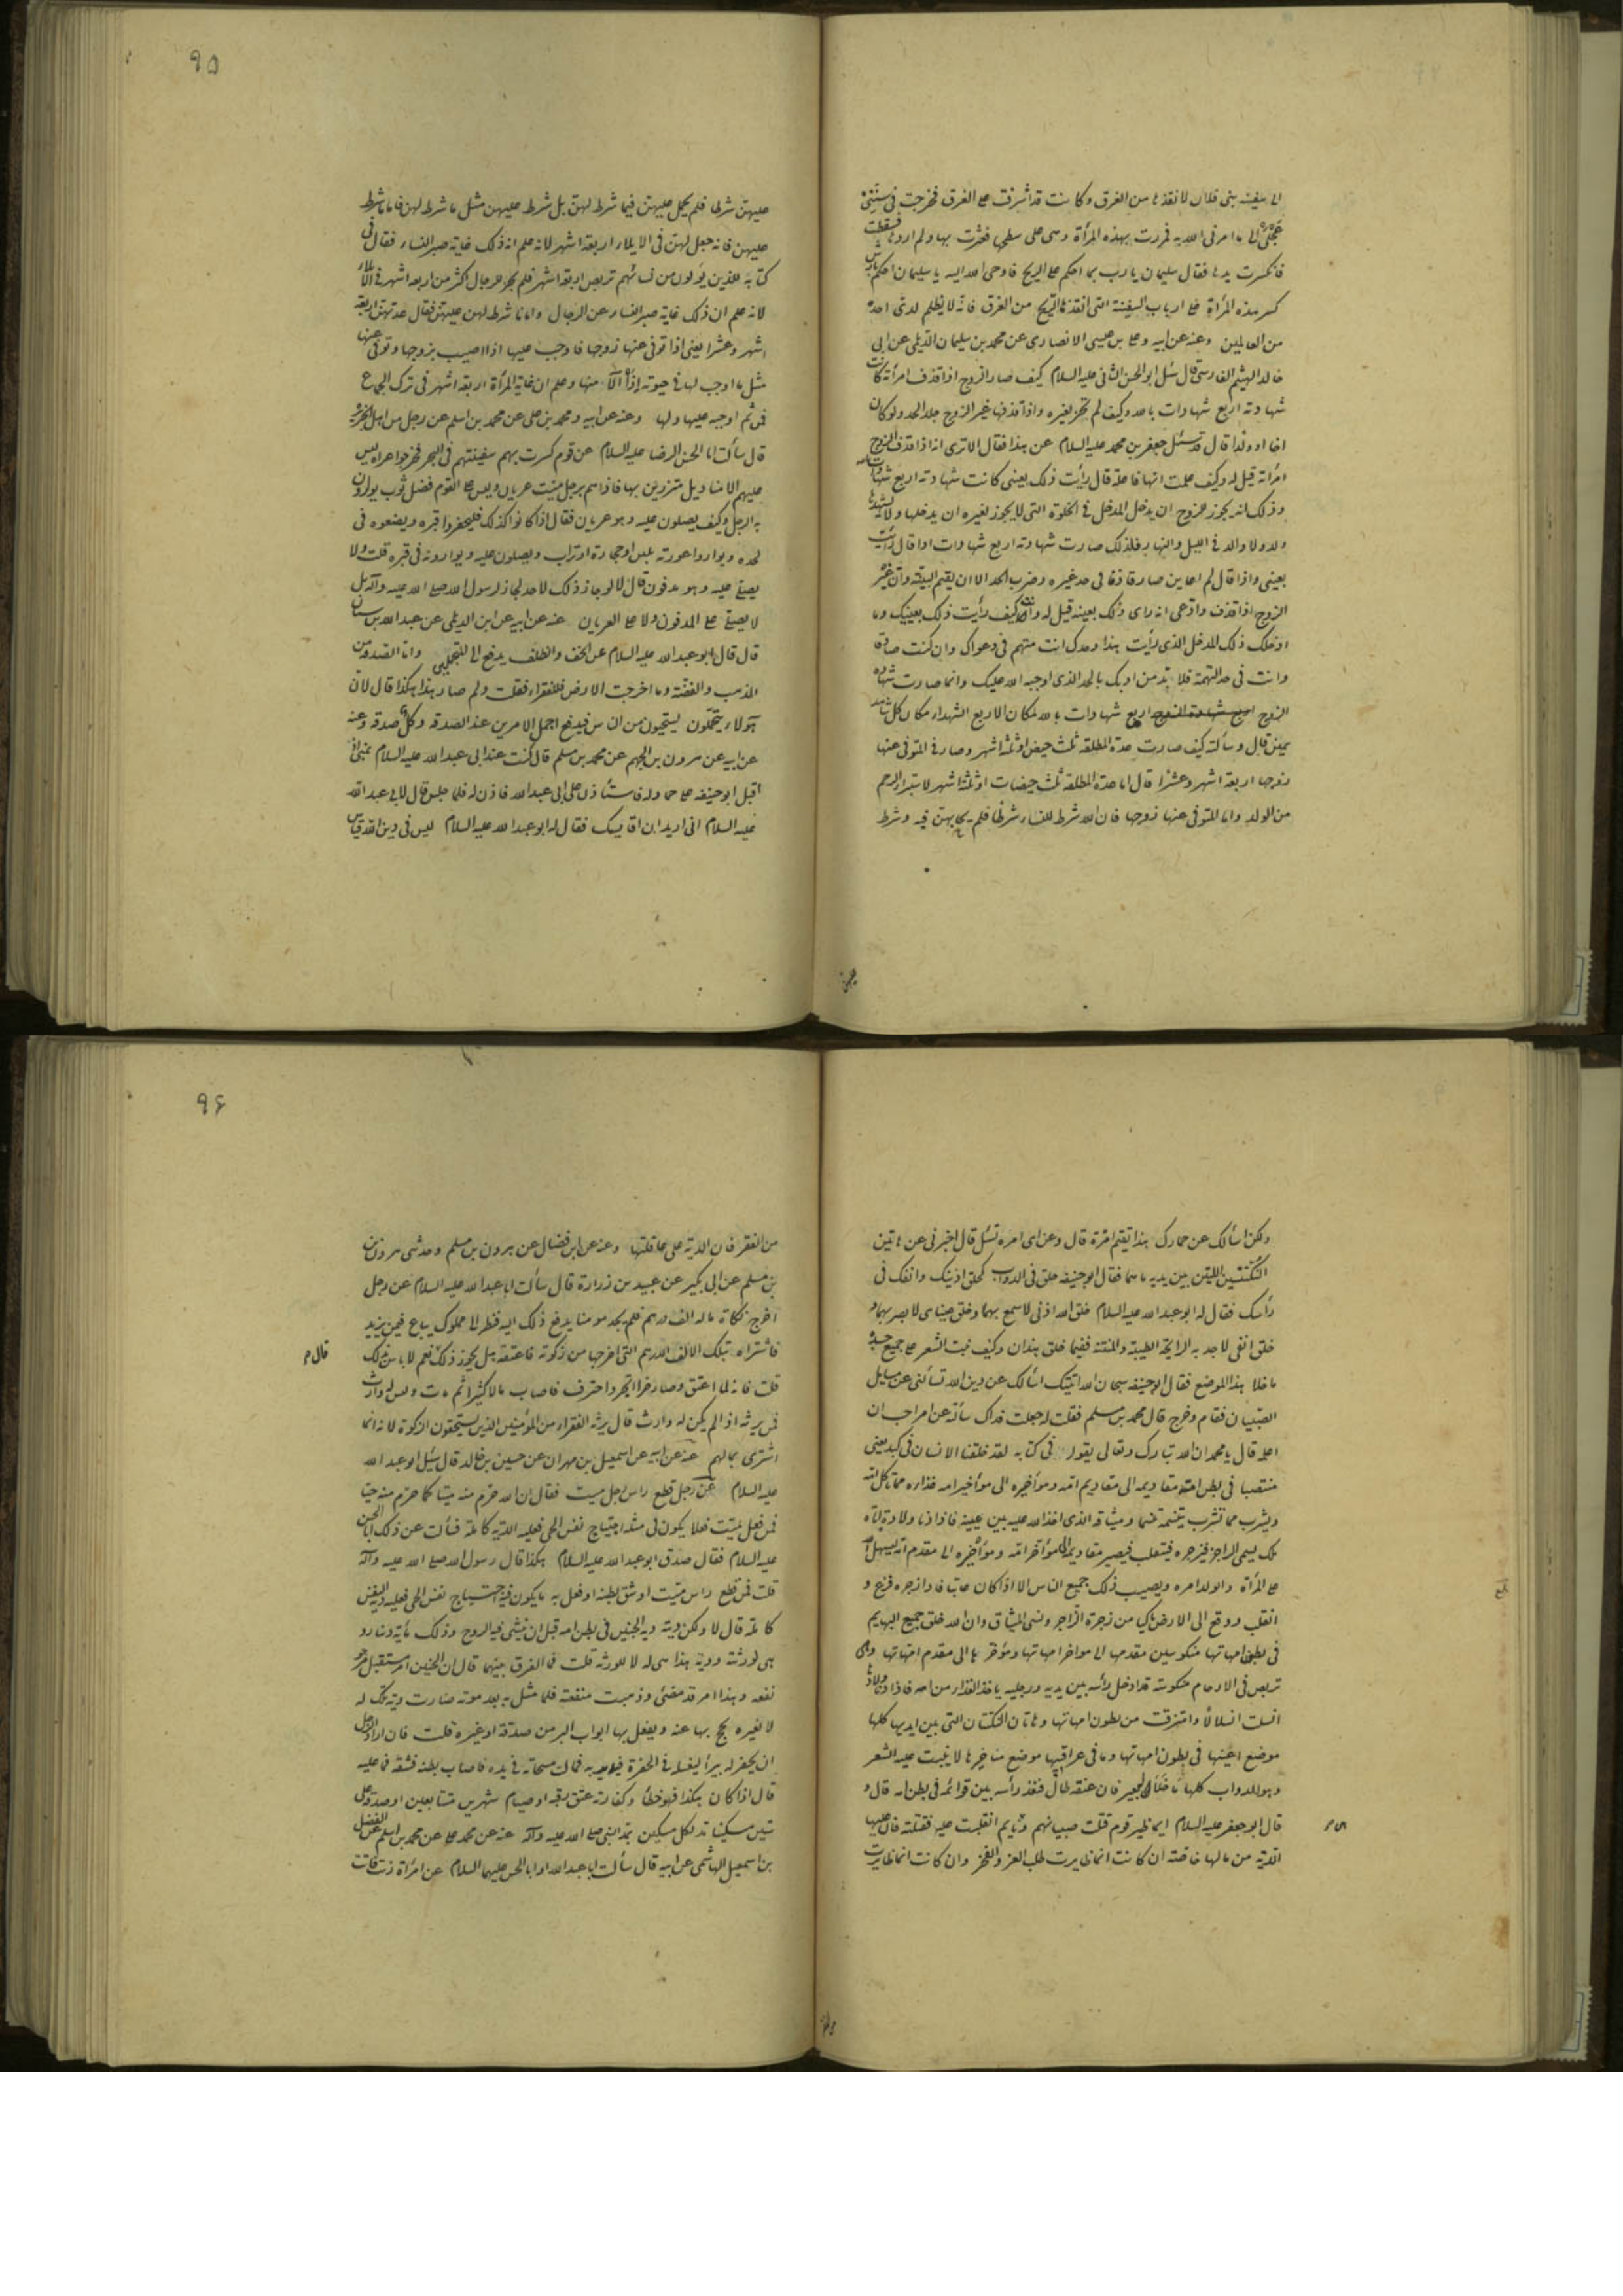 الى سفينة بنى فلان لانقذها من الغرق وكانت قد اشرفت على الغرق فخرجت فى سنتى
عجلى الى ما امرنى الله به فمررت بهذه المرأة وهى على سطحها فعثرت بها ولم اردها فسقطت
فانكسرت يدها فقال سليمان يا رب بما احكم على الريح فاوحى الله اليه يا سليمان احكم بارش
كسر هذه المرأة على ارباب السفينة التى انقذتها الريح من الغرق فانه لا يظلم لدى احد
من العالمين وعنه عن ابيه وعلى بن عيسى الانصارى عن محمد بن سليمان الديلمى عن ابى
خالد الهيثم الفارسى قال سئل ابو الحسن الثانى عليه السلام كيف صار الزوج اذا قذف امرأته كانت
شهادته اربع شهادات بالله وكيف لم تجز لغيره واذا قذفها غير الزوج جلد الحد ولو كان
اخا او ولدا قال قد سئل جعفر بن محمد عليه السلام عن هذا فقال الا ترى انه اذا قذف الزوج
امرأته قيل له وكيف علمت انها فاعلة قال رأيت ذلك بعينى كانت شهادته اربع شهادات بالله
وذلك انه يجوز للزوج ان يدخل المدخل فى الخلوة التى لا يجوز لغيره ان يدخلها ولا يشهدها
ولد ولا والد فى الليل والنهار فلذلك صارت شهادته اربع شهادات اذا قال رأيت
بعينى واذا قال لم اعاين صار قاذفا فى حد غيره وضرب الحد الا ان يقيم البينة وان غير
الزوج اذا قذف وادعى انه راى ذلك بعينه قيل له وانت كيف رأيت ذلك بعينيك وما
ادخلك ذلك المدخل الذى رأيت هذا وحدك انت متهم فى دعواك وان كنت صادقا
وانت فى حد التهمة فلا بد من ادبك بالحد الذى اوجبه الله عليك وانما صارت شهادة
الزوج اربع شهادات بالله لمكان الاربع الشهداء مكان كل شاهد
يمين قال وسألته كيف صارت عدة المطلقة ثلث حيض او ثلثة اشهر وصار فى المتوفى عنها
زوجها اربعة اشهر وعشرا قال اما عدة المطلقة ثلث حيضات او ثلثة اشهر لاستبراء الرحم
من الولد واما المتوفى عنها زوجها فان الله شرط للنساء شرطا فلم يحابهن فيه وشرط
٩٥
عليهن شرطا فلم يحمل عليهن فيما شرط لهن بل شرط عليهن مثل ما شرط لهن فاما ما شرط
عليهن فانه جعل لهن فى الايلاء اربعة اشهر لانه علم ان ذلك غاية صبر النساء فقال فى
كتابه للذين يؤلون من نسائهم تربص اربعة اشهر فلم يجز للرجال اكثر من اربعة اشهر فى الايلاء
لانه علم ان ذلك غاية صبر النساء عن الرجال واما ما شرط لهن عليهن فقال عدتهن اربعة
اشهر وعشرا يعنى اذا توفى عنها زوجها فاوجب عليها اذا اصيبت بزوجها وتوفى عنها
مثل ما اوجب لها فى حيوته اذا الا منها وعلم ان غاية المرأة اربعة اشهر فى ترك الجماع
فمن ثم اوجبه عليها ولها وعنه عن ابيه ومحمد بن على عن محمد بن اسلم عن رجل من اهل الجزيرة
قال سألت ابا الحسن الرضا عليه السلام عن قوم كسرت بهم سفينتهم فى البحر فخرجوا عراة ليس
عليهم الا مناديل متزرين بها فاذا هم برجل ميت عريان وليس على القوم فضل ثوب يوارون
به الرجل وكيف يصلون عليه وهو عريان فقال اذا كانوا كذلك فليحفروا قبره ويضعوه فى
لحده ويواروا عورته بلبن او حجارة او تراب ويصلون عليه ويوارونه فى قبره قلت ولا
يصلى عليه وهو مدفون قال لا لو جاز ذلك لاحد لجاز لرسول الله صلى الله عليه وآله بل
لا يصلى على المدفون ولا على العريان عنه عن ابيه عن ابن الديلمى عن عبد الله بن سنان
قال قال ابو عبد الله عليه السلام عن الخف والظلف يدفع الى المتجملين واما الصدقة من
الذهب والفضة وما اخرجت الارض فللفقراء فقلت ولم صار هذا هكذا قال لان
هؤلاء يتجملون يستحيون من الناس فيدفع اجمل الامرين عند الصدقة وكل صدقة وعنه
عن ابيه عن هرون بن الجهم عن محمد بن مسلم قال كنت عند ابى عبد الله عليه السلام بمنى اذ
اقبل ابو حنيفة على حمار له فاستأذن على ابى عبد الله فاذن له فلما جلس قال لابى عبد الله
عليه السلام انى اريد ان اقايسك فقال له ابو عبد الله عليه السلام ليس فى دين الله قياس
ولكن اسألك عن حمارك هذا فيم امره قال وعن اى امره تسئل قال اخبرنى عن هاتين
النكتتين اللتين بين يديه ما هما فقال ابو حنيفة خلق فى الدواب كخلق اذنيك وانفك فى
رأسك فقال له ابو عبد الله عليه السلام خلق الله اذنى لاسمع بهما وخلق عيناى لابصر بهما و
خلق انفى لاجد به الرايحة الطيبة والمنتنة ففيما خلق هذان وكيف نبت الشعر على جميع جسده
ما خلا هذا الموضع فقال ابو حنيفة سبحان الله اتيتك اسألك عن دين الله تسألنى عن مسايل
الصبيان فقام وخرج قال محمد بن مسلم فقلت له جعلت فداك سألته عن امر احب ان
اعلمه قال يا محمد ان الله تبارك وتعالى يقول فى كتابه لقد خلقنا الانسان فى كبد يعنى
منتصبا فى بطن امه مقاديمه الى مقاديم امه ومواخيره الى مواخير امه غذاره مما تأكل امه
ويشرب مما تشرب تنسمه تنسيما وميثاقه الذى اخذ الله عليه بين عينيه فاذا دنا ولادة اتاه
ملك يسمى الزاجر فيزجره فينقلب فيصير مقاديمه الى مواخر امه ومواخيره الى مقدم امه ليسهل الله
على المرأة والولد امره ويصيب ذلك جميع الناس الا اذا كان عاتيا فاذا زجره فزع و
انقلب ووقع الى الارض باكيا من زجرة الزاجر ونسى الميثاق وان الله خلق جميع البهايم
فى بطون امهاتها منكوسين مقدمها الى مواخر امهاتها ومؤخرها الى مقدم امهاتها وهى
تربص فى الارحام منكوسة قد ادخل رأسه بين يديه ورجليه ياخذ الغذاء من امه فاذا دنا ولادها
انسلت انسلالا وامتزقت من بطون امهاتها وهاتان النكتتان التى بين ايديها كلها
موضع اعينها فى بطون امهاتها وما فى عراقيبها موضع مناخيرها لا ينبت عليه الشعر
وهو للدواب كلها ما خلا البعير فان عنقه طال فنفذ رأسه بين قوائمه فى بطن امه قال و
قال ابو جعفر عليه السلام ايما ظئر قوم قتلت صبيا لهم وهى نايم انقلبت عليه فقتلته فان عليها
الدية من مالها خاصة ان كانت انما ظايرت طلب العز والفخر وان كانت انما ظايرت
٩٦
من الفقر فان الدية على عاقلتها وعنه عن ابن فضال عن هرون بن مسلم وحدثنى هرون
بن مسلم عن ابن بكير عن عبيد بن زرارة قال سألت ابا عبد الله عليه السلام عن رجل
اخرج زكاة ماله الف درهم فلم يجد مؤمنا يدفع ذلك اليه فنظر الى مملوك يباع فيمن يزيد
فاشتراه بتلك الالف الدرهم التى اخرجها من زكوته فاعتقه هل يجوز ذلك نعم لا باس بذلك
قال م
قلت فانه لما اعتق وصار حرا اتجر واحترف فاصاب مالا كثيرا ثم مات وليس له وارث
فمن يرثه اذا لم يكن له وارث قال يرثه الفقراء من المؤمنين الذين يستحقون الزكوة لانه انما
اشترى بمالهم عنه عن ابيه عن اسمعيل بن مهران عن حسين بن خالد قال سئل ابو عبد الله
عليه السلام عن رجل قطع راس رجل ميت فقال ان الله حرم منه ميتا كما حرم منه حيا
فمن فعل بميت فعلا يكون فى مثله اجتياح نفس الحى فعليه الدية كاملة فسألت عن ذلك ابا الحسن
عليه السلام فقال صدق ابو عبد الله عليه السلام هكذا قال رسول الله صلى الله عليه وآله
قلت فمن قطع راس ميت او شق بطنه او فعل به ما يكون فيه اجتياح نفس الحى فعليه دية النفس
كاملة قال لا ولكن ديته دية الجنين فى بطن امه قبل ان ينشئ فيه الروح وذلك مأية دينار و
هى لورثته ودية هذا هى له لا للورثة قلت فما الفرق بينهما قال ان الجنين امر مستقبل مرجو
نفعه وهذا امر قد مضى وذهبت منفعته فلما مثل به بعد موته صارت ديته تلك له
لا لغيره يحج بها عنه ويفعل بها ابواب البر من صدقة او غيره قلت فان اراد رجل
ان يحفر له بيرا ليغسله فى الحفرة فيدير به فمالت مسحاته فى يده فاصاب بطنه فشقه فما عليه
قال اذا كان هكذا فهو خطأ وكفارته عتق رقبة او صيام شهرين متتابعين او صدقة على
ستين مسكينا مد لكل مسكين بمد النبى صلى الله عليه وآله عنه عن محمد بن على عن محمد بن اسلم عن الفضل
بن اسمعيل الهاشمى عن ابيه قال سألت ابا عبد الله او ابا الحسن عليهما السلام عن امرأة زنت فاتت